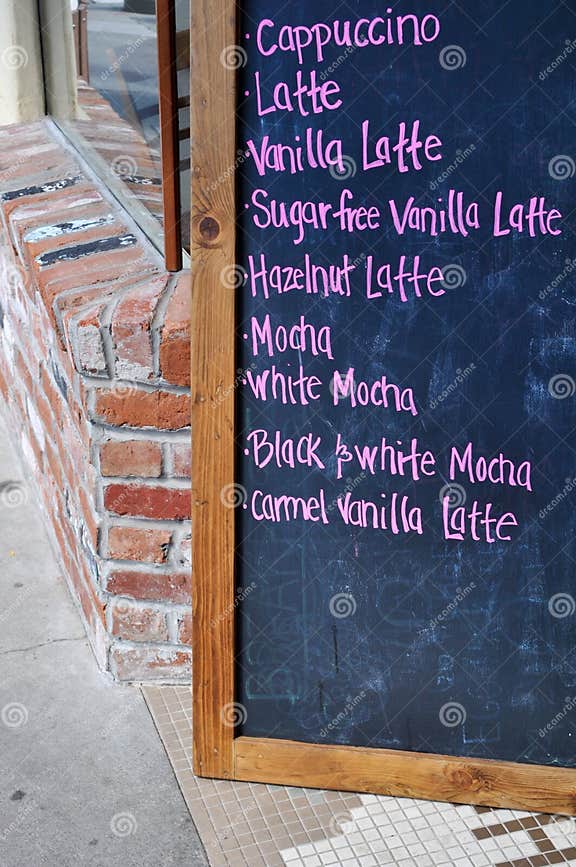 · Cappuccino
· Latte
· Vanilla Latte
· Sugar free Vanilla Latte
· Hazelnut Latte
· Mocha
· White Mocha
· Black & white Mocha
· Carmel Vanilla Latte